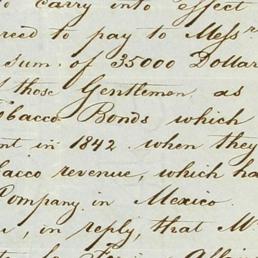 to carry into effect
reed to pay to Messrs
sum of 35000 Dollar
those Gentlemen as
obacco Bonds which
nt in 1842 when they
acco revenue, which ha
Company in Mexico.
, in reply, that M